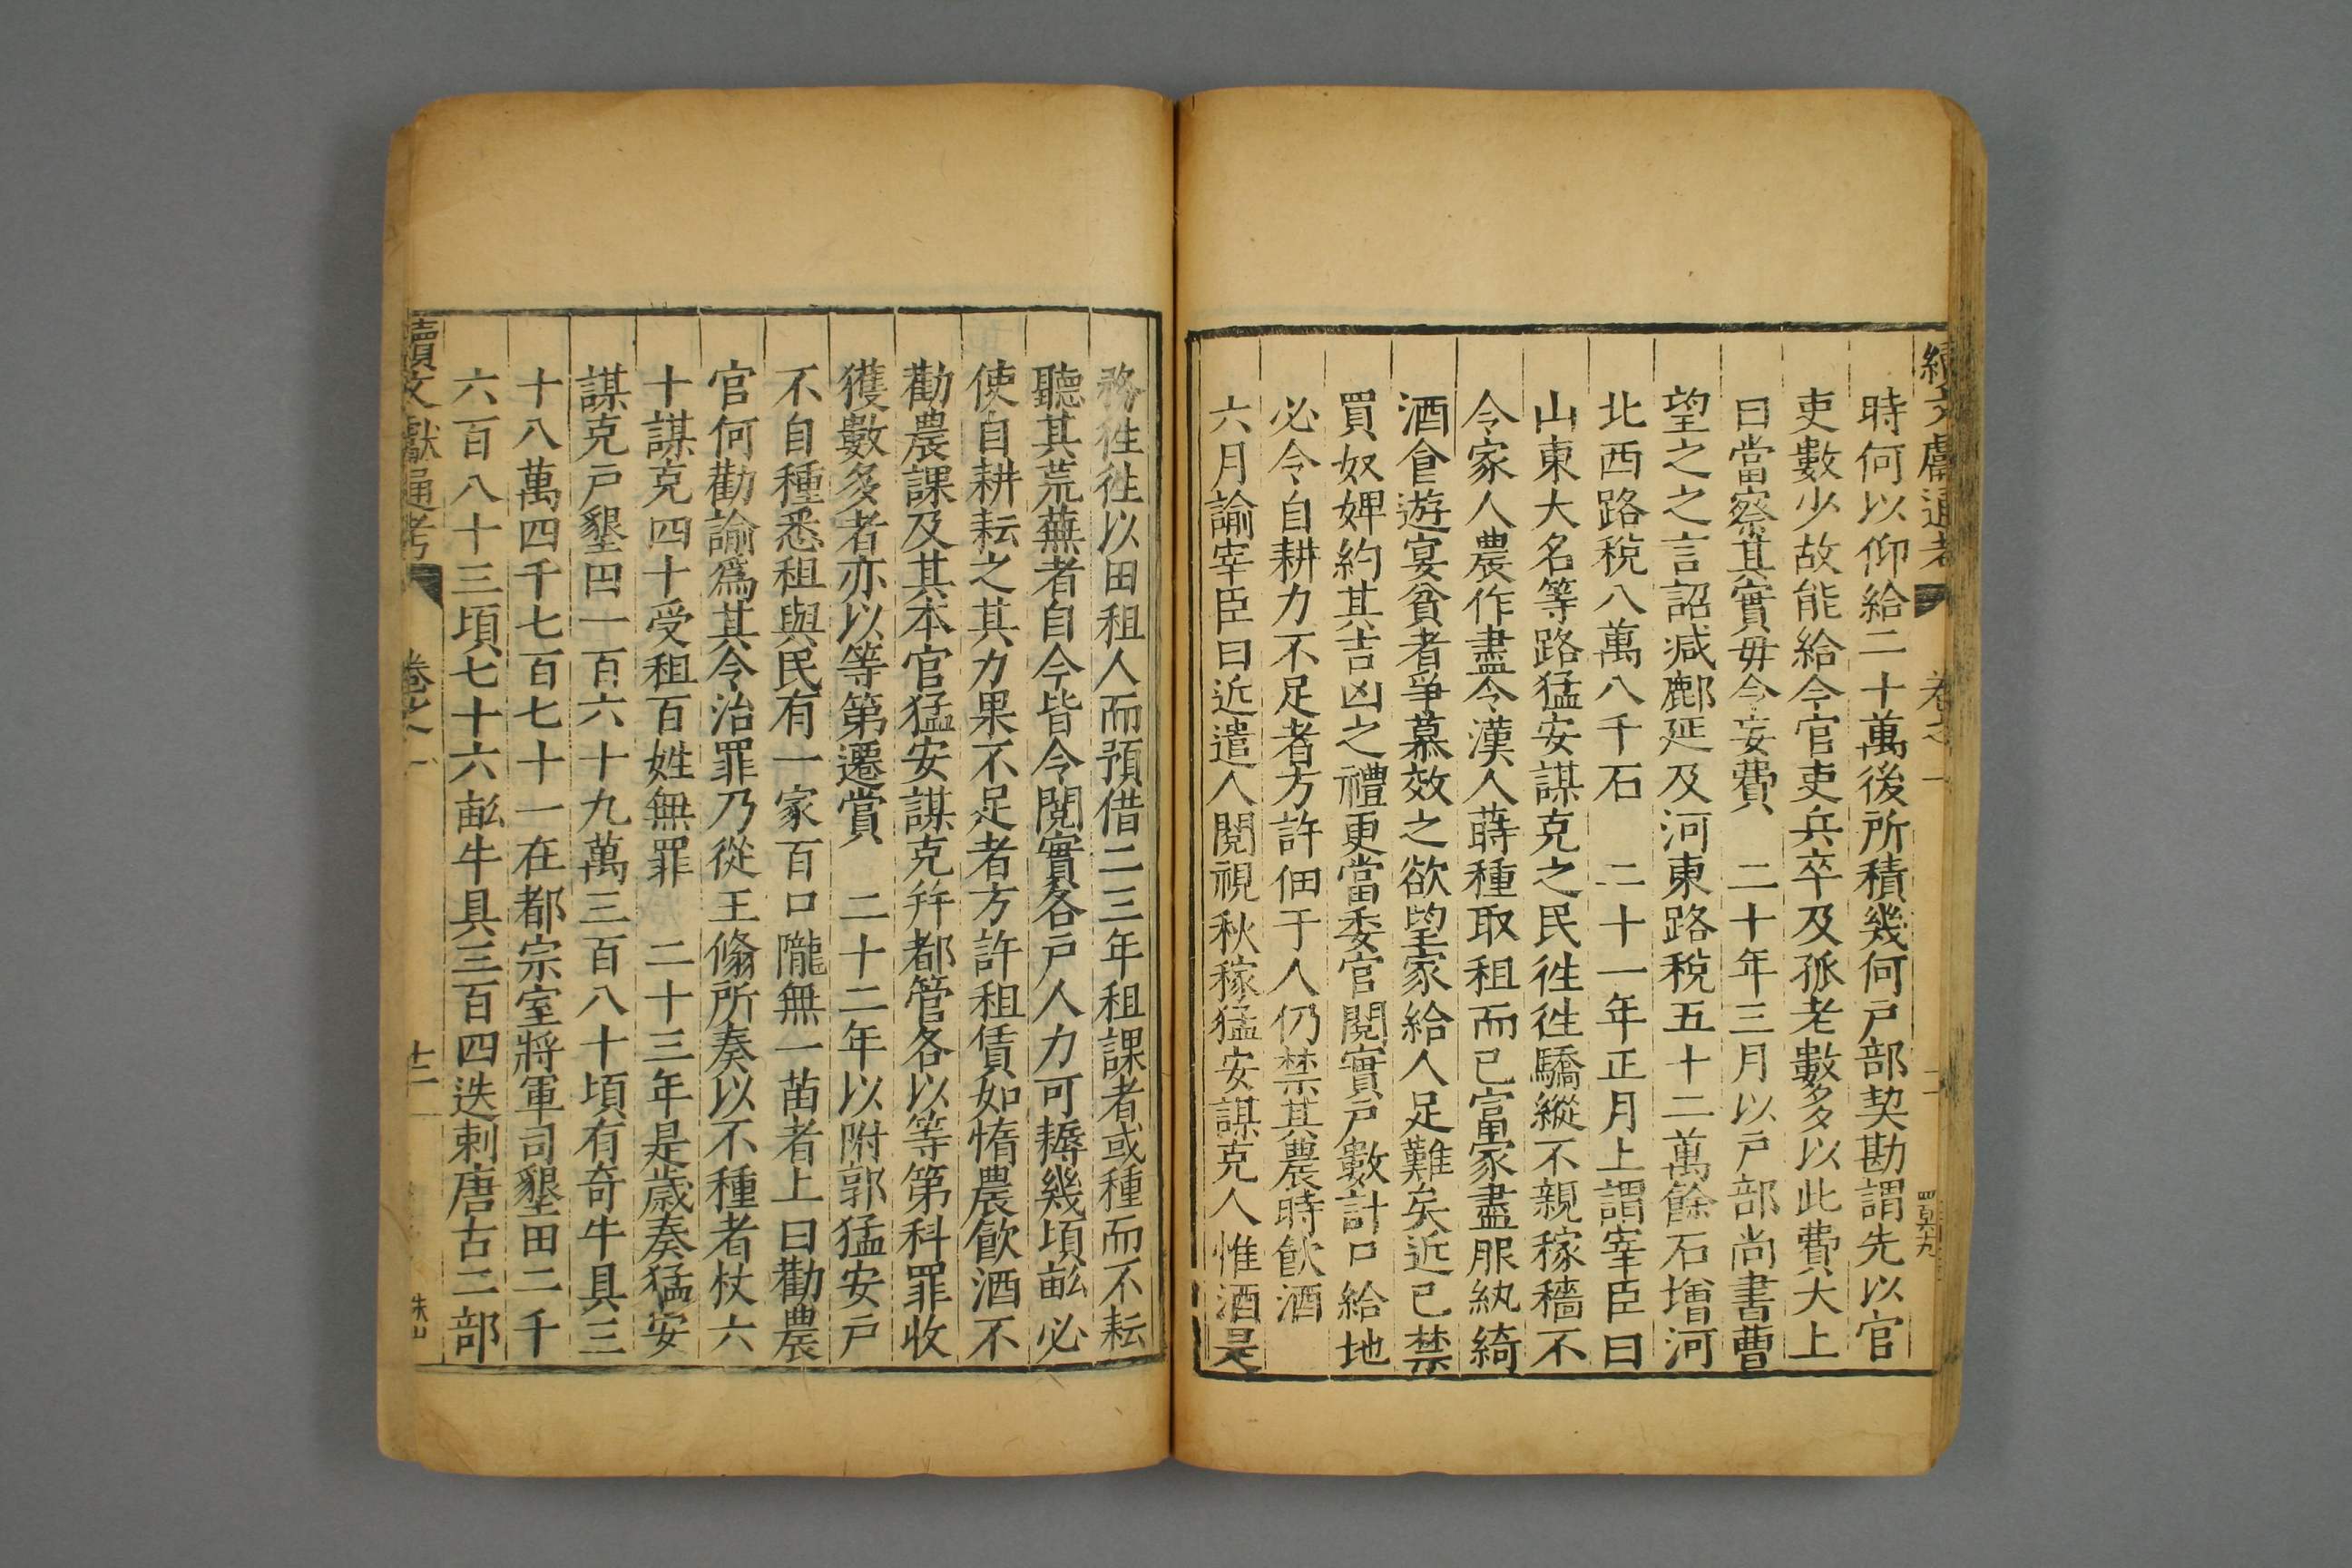 續文獻通考 卷之一
時何以仰給二十萬後所積幾何戶部契勘謂先以官
吏數少故能給今官吏兵卒及孤老數多以此費大上
曰當察其實毋令妄費 二十年三月以戶部尚書曹
望之之言詔减鄜延及河東路稅五十二萬餘石增河
北西路稅八萬八千石 二十一年正月上謂宰臣曰
山東大名等路猛安謀克之民徃徃驕縱不親稼穡不
令家人農作盡令漢人蒔種取租而已富家盡服紈綺
酒食遊宴貧者爭慕效之欲望家給人足難矣近已禁
買奴婢約其吉凶之禮更當委官閱實戶數計口給地
必令自耕力不足者方許佃于人仍禁其農時飲酒
六月諭宰臣曰近遣人閱視秋稼猛安謀克人惟酒是
務徃徃以田租人而預借二三年租課者或種而不耘
聽其荒蕪者自今皆令閱實各戶人力可耨幾頃畝必
使自耕耘之其力果不足者方許租賃如惰農飲酒不
勸農課及其本官猛安謀克并都管各以等第科罪收
獲數多者亦以等第遷賞 二十二年以附郭猛安戶
不自種悉租與民有一家百口隴無一苗者上曰勸農
官何勸諭爲其令治罪乃從王脩所奏以不種者杖六
十謀克四十受租百姓無罪 二十三年是歲奏猛安
謀克戶墾田一百六十九萬三百八十頃有奇牛具三
十八萬四千七百七十一在都宗室將軍司墾田二千
六百八十三頃七十六畝牛具三百四迭剌唐古二部
續文獻通考 卷之一 十二